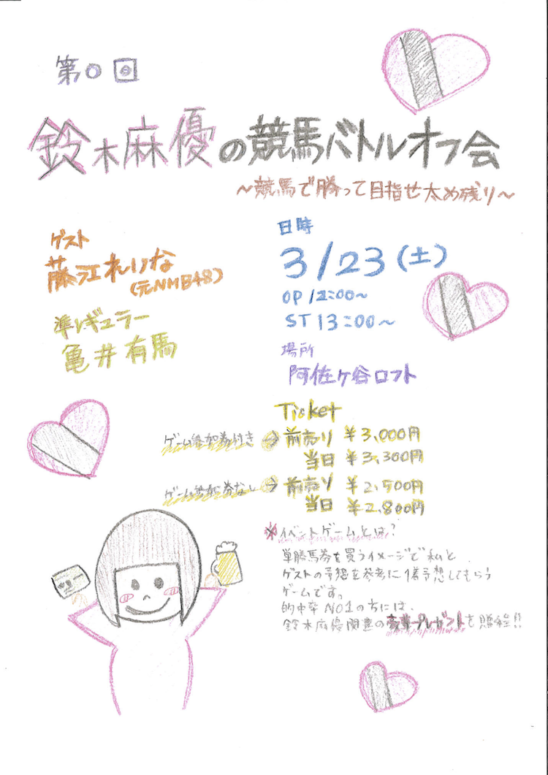 第0回
鈴木麻優の競馬バトルオフ会
〜競馬で勝って目指せ太め残り〜
ゲスト
藤江れいな
(元NMB48)
準レギュラー
亀井有馬
日時
3/23(土)
OP 12:00〜
ST 13:00〜
場所
阿佐ヶ谷ロフト
Ticket
ゲーム参加券付き→前売り ¥3,000円
当日 ¥3,300円
ゲーム参加券なし→前売り ¥2,500円
当日 ¥2,800円
※イベントゲームとは?
単勝馬券を買うイメージで私と
ゲストの予想を参考に1着予想してもらう
ゲームです。
的中率NO1の方には、
鈴木麻優関連の豪華プレゼントを贈呈!!